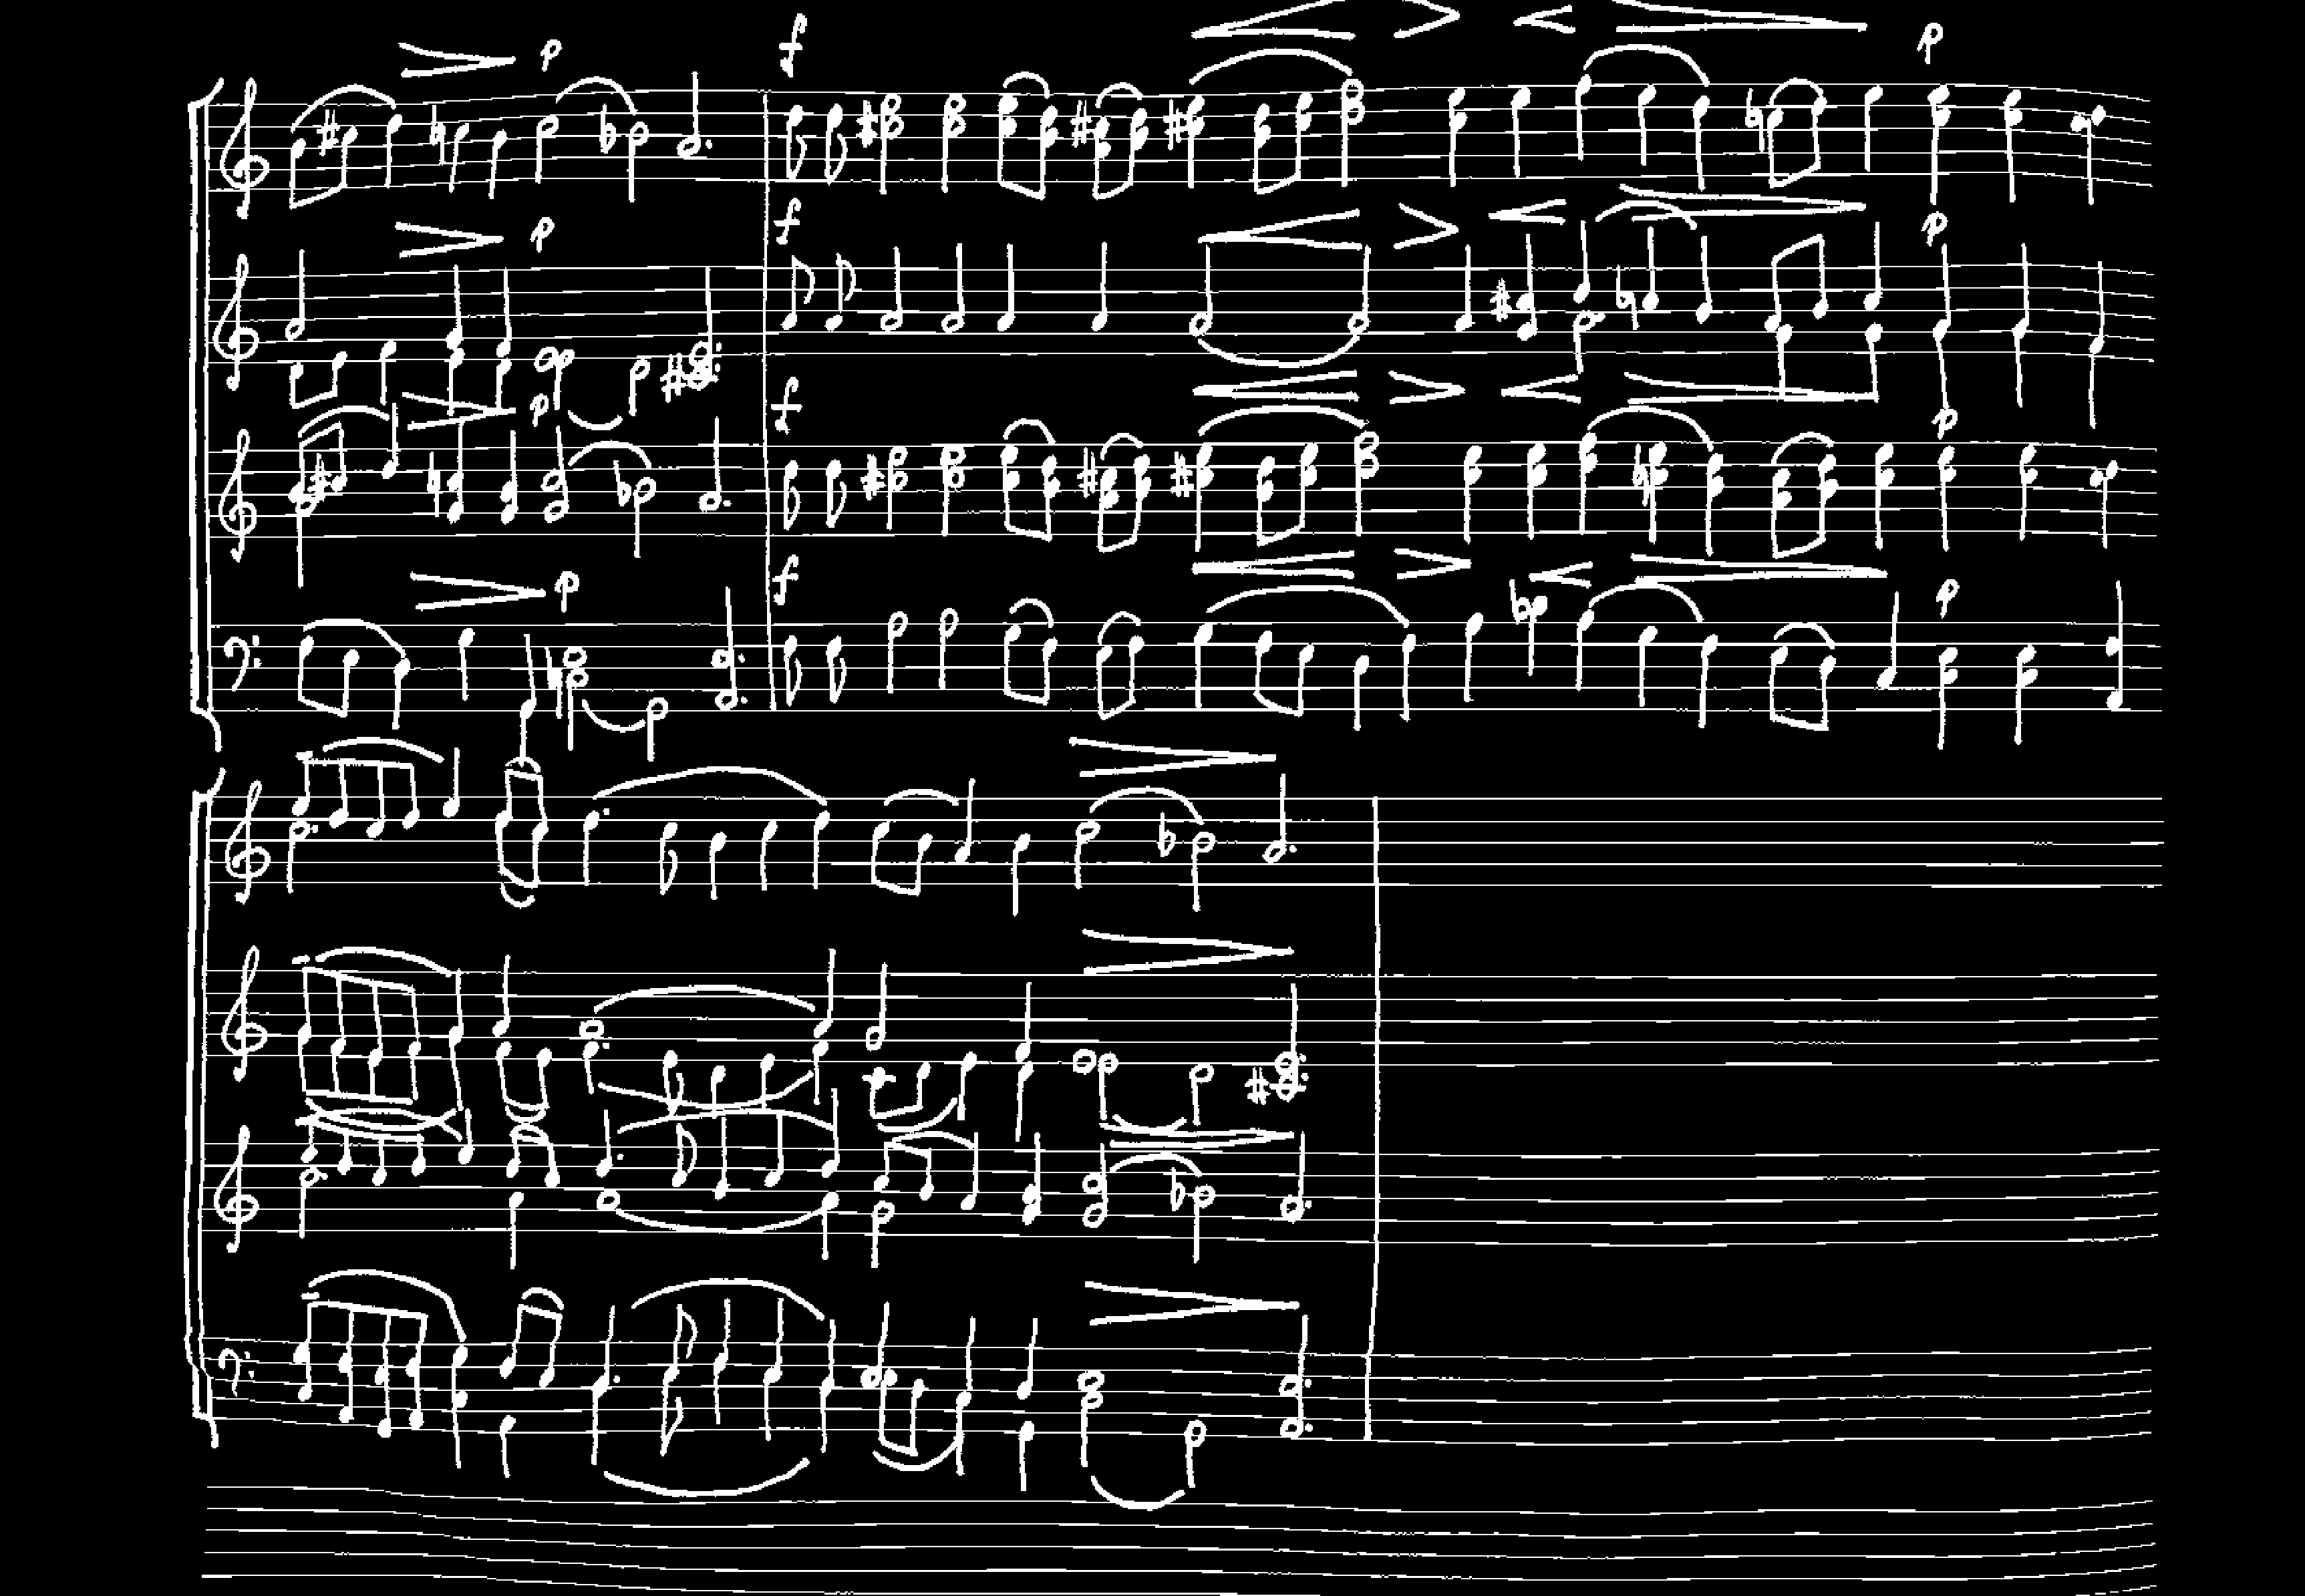 p f p
f p p
p f p
p f p